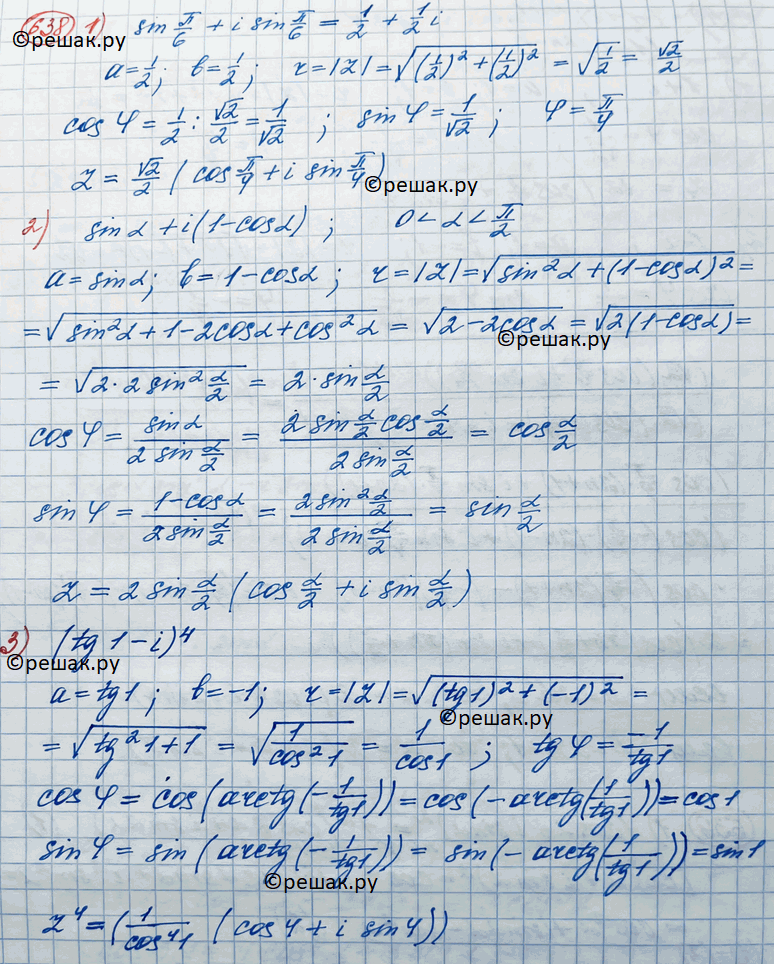 638) 1) sin π/6 + i sin π/6 = 1/2 + 1/2 i
©решак.ру
a = 1/2; b = 1/2; r = |z| = √((1/2)² + (1/2)²) = √(1/2) = √2/2
cos φ = 1/2 : √2/2 = 1/√2 ; sin φ = 1/√2 ; φ = π/4
z = √2/2 (cos π/4 + i sin π/4)
©решак.ру
2) sin α + i(1-cos α) ; 0 < α < π/2
a = sin α; b = 1-cos α ; r = |z| = √(sin²α + (1-cos α)²) =
= √(sin²α + 1 - 2cos α + cos²α) = √(2-2cos α) = √(2(1-cos α)) =
©решак.ру
= √(2·2 sin² α/2) = 2·sin α/2
cos φ = sin α/(2 sin α/2) = (2 sin α/2 cos α/2)/(2 sin α/2) = cos α/2
sin φ = (1-cos α)/(2 sin α/2) = (2 sin² α/2)/(2 sin α/2) = sin α/2
z = 2 sin α/2 (cos α/2 + i sin α/2)
3) (tg 1 - i)⁴
©решак.ру
a = tg 1 ; b = -1; r = |z| = √((tg 1)² + (-1)²) =
©решак.ру
= √(tg² 1 + 1) = √(1/cos² 1) = 1/cos 1 ; tg φ = -1/tg 1
cos φ = cos (arctg(-1/tg 1)) = cos (-arctg(1/tg 1)) = cos 1
sin φ = sin (arctg(-1/tg 1)) = sin (-arctg(1/tg 1)) = sin 1
©решак.ру
z⁴ = (1/cos⁴ 1 (cos 4 + i sin 4))